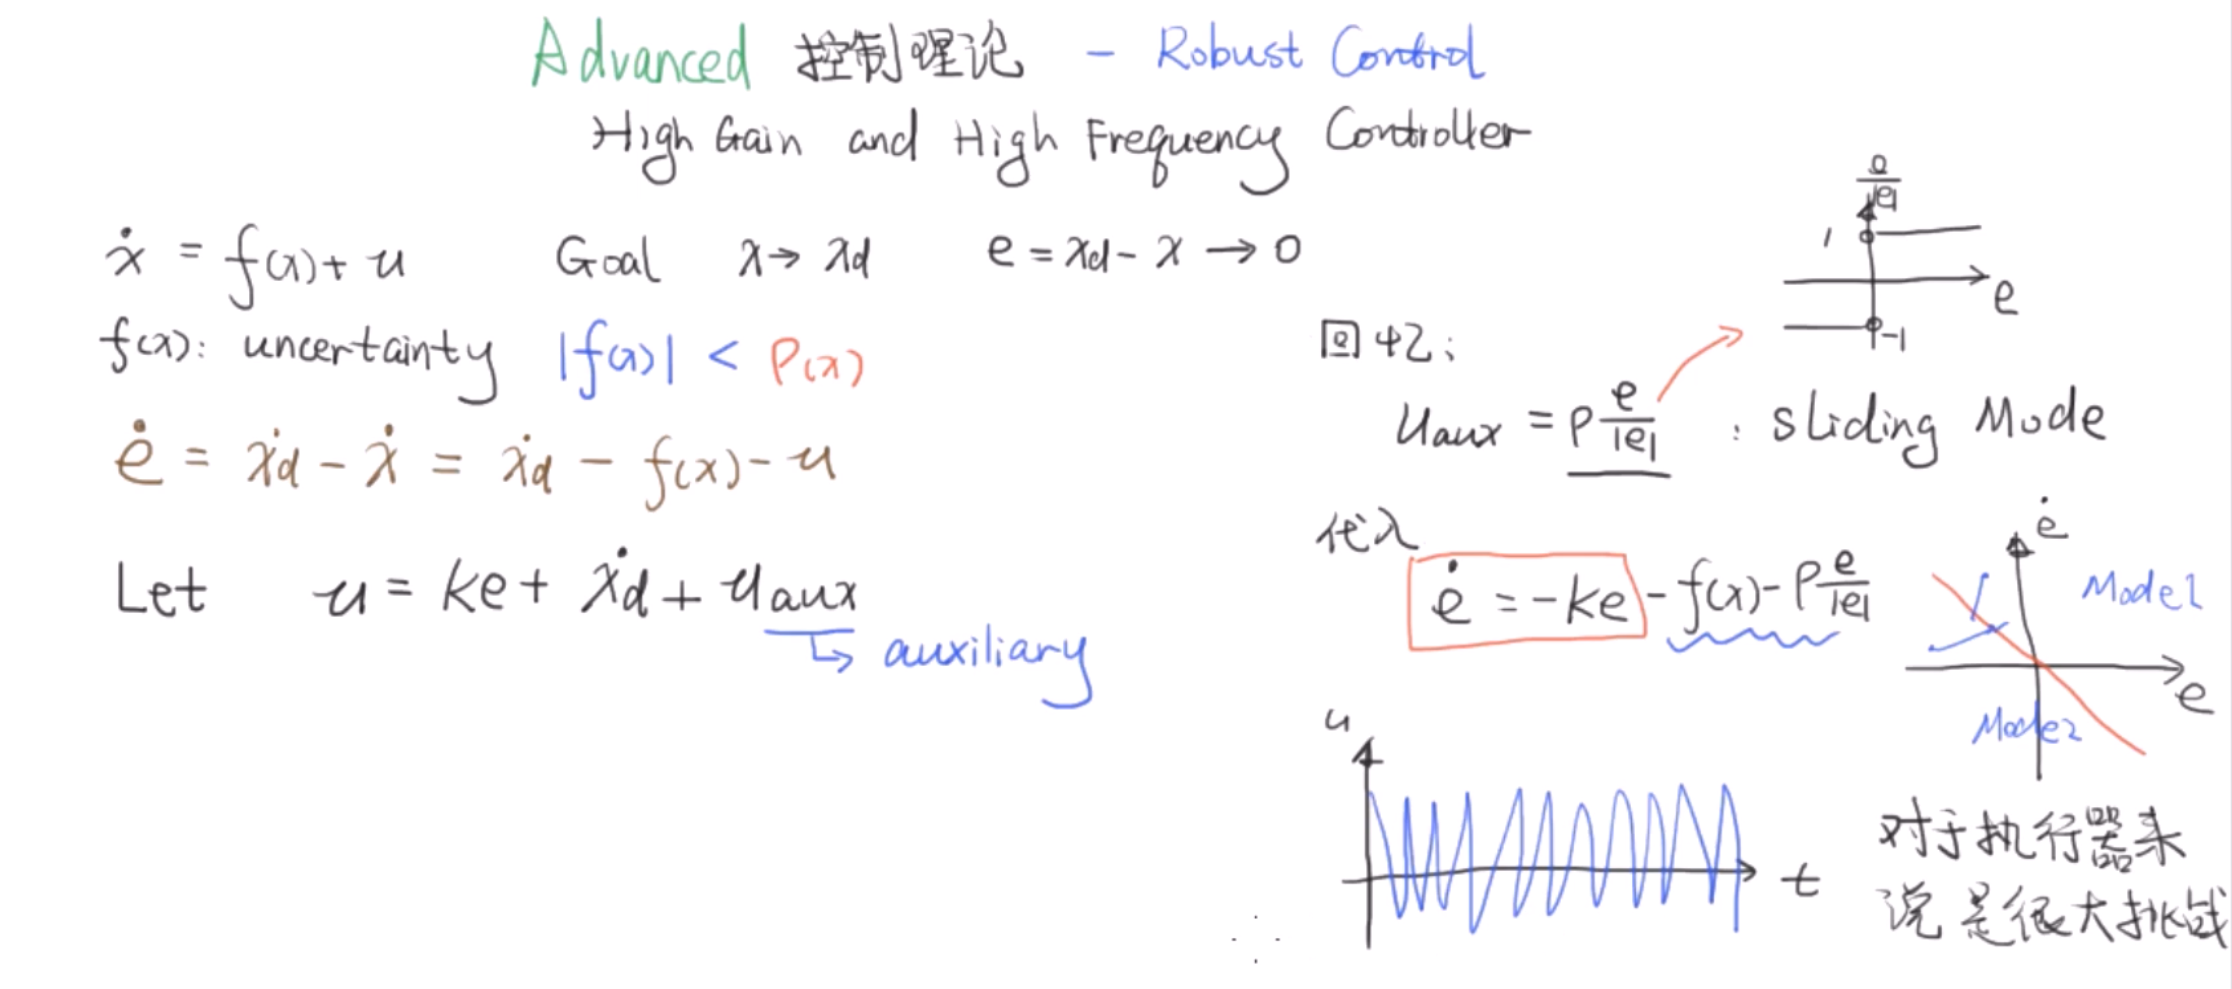 Advanced 控制理论 - Robust Control
High Gain and High Frequency Controller
ẋ = f(x) + u Goal x → xd e = xd - x → 0
f(x): uncertainty |f(x)| < ρ(x)
ė = ẋd - ẋ = ẋd - f(x) - u
Let u = ke + ẋd + uaux
↳ auxiliary
e/|e|
1
e
-1
回忆:
uaux = ρ e/|e| : Sliding Mode
代入
ė = -ke - f(x) - ρ e/|e|
ė
Mode1
e
Mode2
u
t
对于执行器来
说是很大挑战